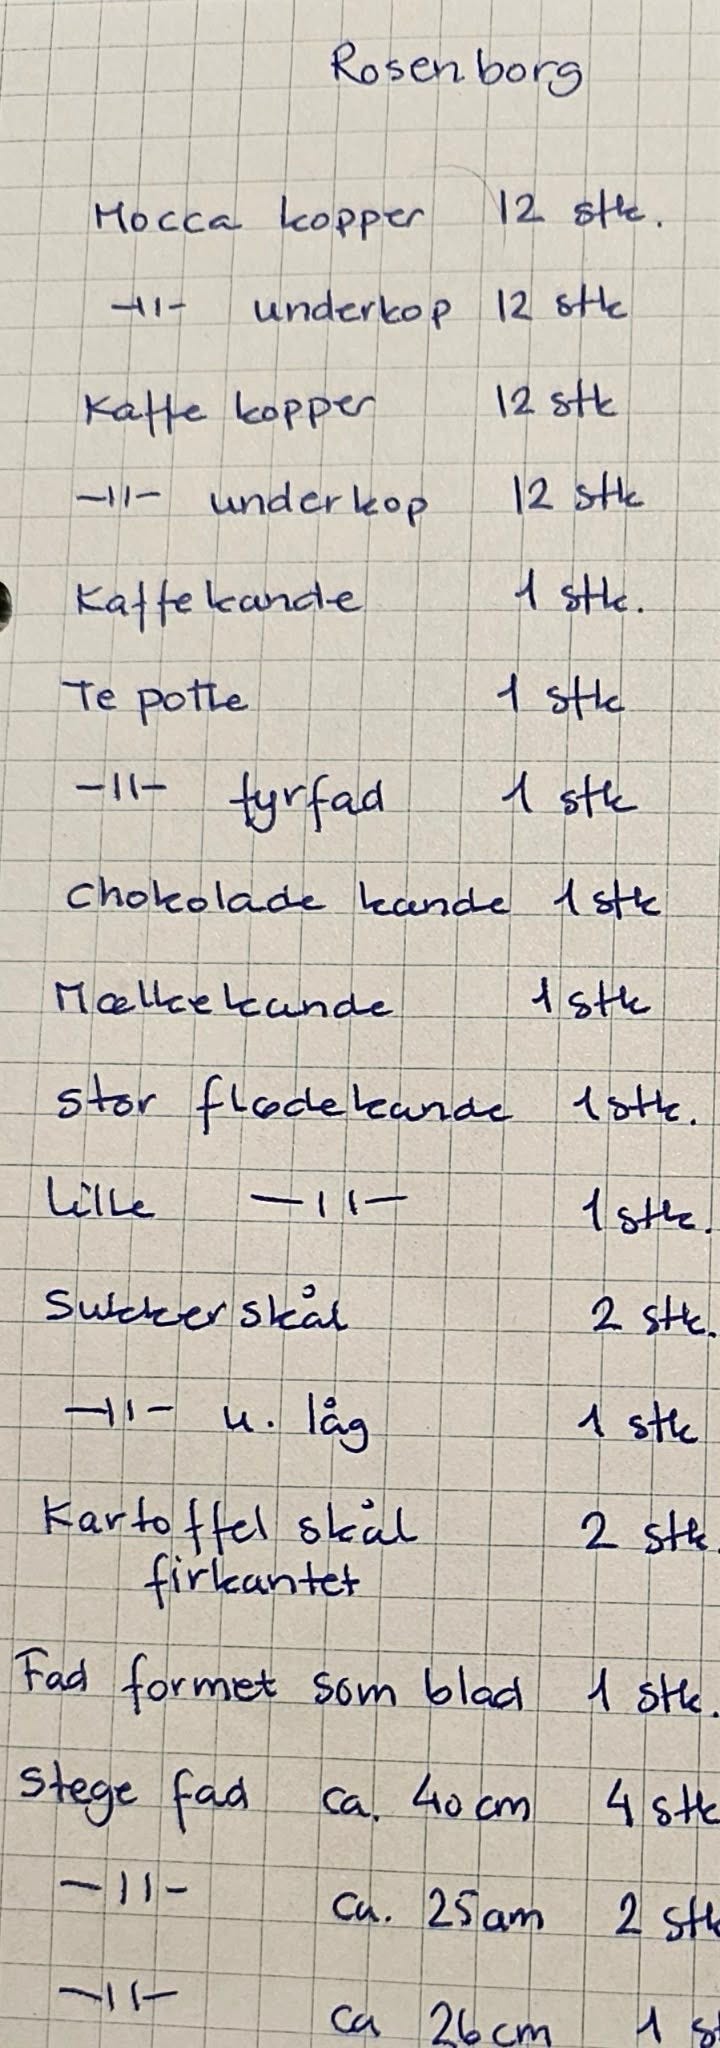 Rosenborg
Mocca kopper 12 stk.
-11- underkop 12 stk
Kaffe kopper 12 stk
-11- underkop 12 stk
Kaffekande 1 stk.
Te potte 1 stk
-11- fyrfad 1 stk
Chokolade kande 1 stk
Mælkekande 1 stk
stor flødekande 1 stk.
Lille -11- 1 stk.
Sukkerskål 2 stk.
-11- u. låg 1 stk
Kartoffel skål 2 stk.
firkantet
Fad formet som blad 1 stk.
Stege fad ca. 40 cm 4 stk
-11- ca. 25 cm 2 stk
-11- ca 26 cm 1 st